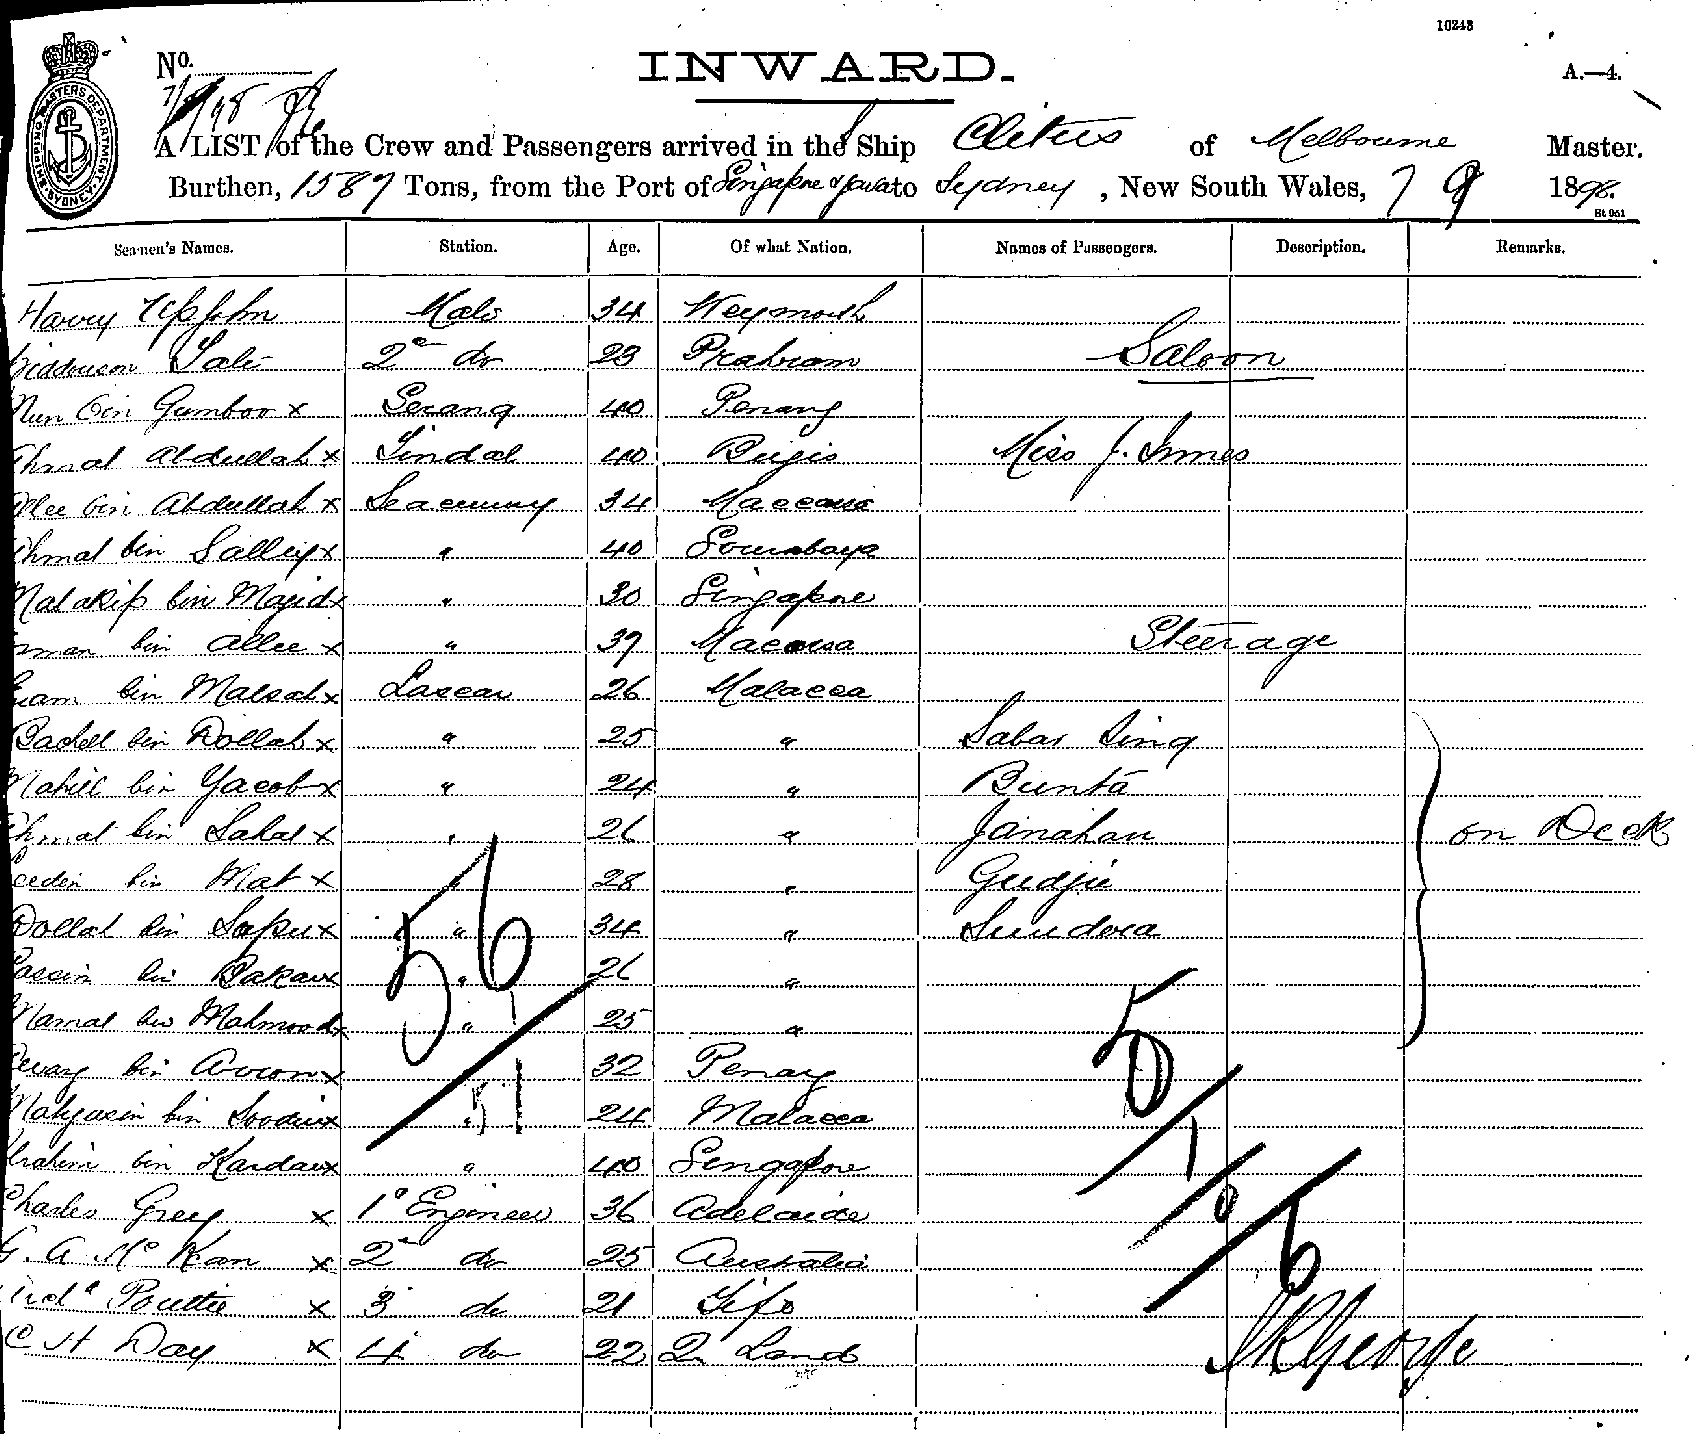 10243
INWARD.
No.
A.—4.
A LIST of the Crew and Passengers arrived in the Ship Clitus of Melbourne Master.
Burthen, 1587 Tons, from the Port of Singapore & Java to Sydney, New South Wales, 7 9 1898.
SHIPPING MASTERS DEPARTMENT SYDNEY
Seamen's Names. Station. Age. Of what Nation. Names of Passengers. Description. Remarks.
Harry Upjohn Mate 34 Weymouth
Tate 2e do 23 Prahram Saloon
Nun bin Gumboo x Serang 40 Penang
Ahmat Abdullah x Tindal 40 Bugis Miss J. Innes
Allee bin Abdullah x Seacunny 34
Ahmat bin Salley x " 40 Sourabaya
Matakip bin Majid x " 30 Singapore
bin Allee x " 39 Steerage
bin Matsah x Lascar 26 Malacca
bin Dollah x " 25 " Sabar Sing
bin Yacob x " 24 " Bunta
Ahmat bin Sahat x " 26 " Janahan on Deck
bin Mat x " 28 " Gudjie
Dollah bin Sapu x " 34 "
bin x " 26 "
Mamat bin Mahmood x " 25 "
bin x 32 Penang
bin x " 24 Malacca
Ibrahim bin x " 40 Singapore
Charles Grey x 1e Engineer 36 Adelaide
G. A. Mc Kan x 2e do 25 Australia
x 3 do 21 Fife
C H Day x 4 do 22 Q Land
56
51
5
1
6